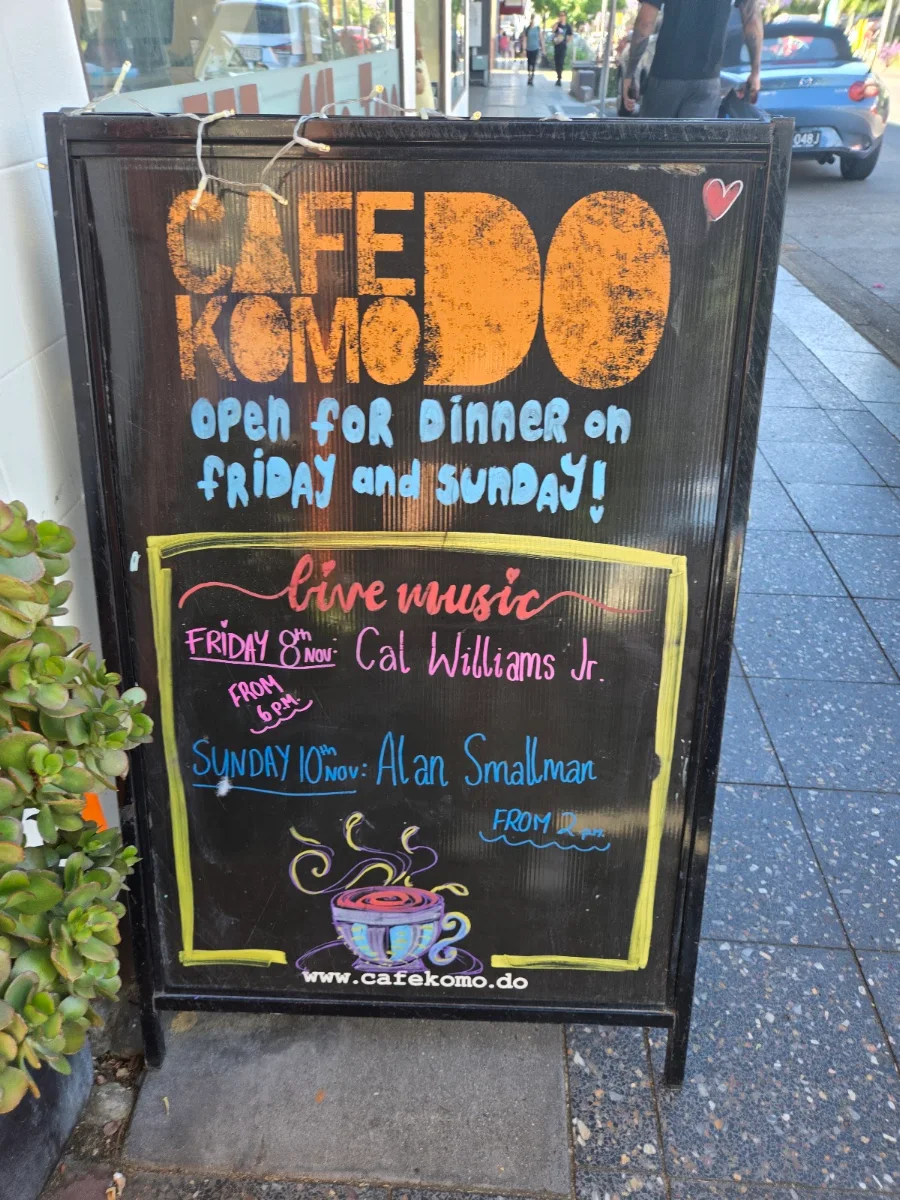 CAFE
KOMODO
OPEN FOR DINNER ON
FRIDAY and SUNDAY!
live music
FRIDAY 8th NOV: Cal Williams Jr.
FROM
6 P.M.
SUNDAY 10th NOV: Alan Smallman
FROM 2 P.M.
www.cafekomo.do